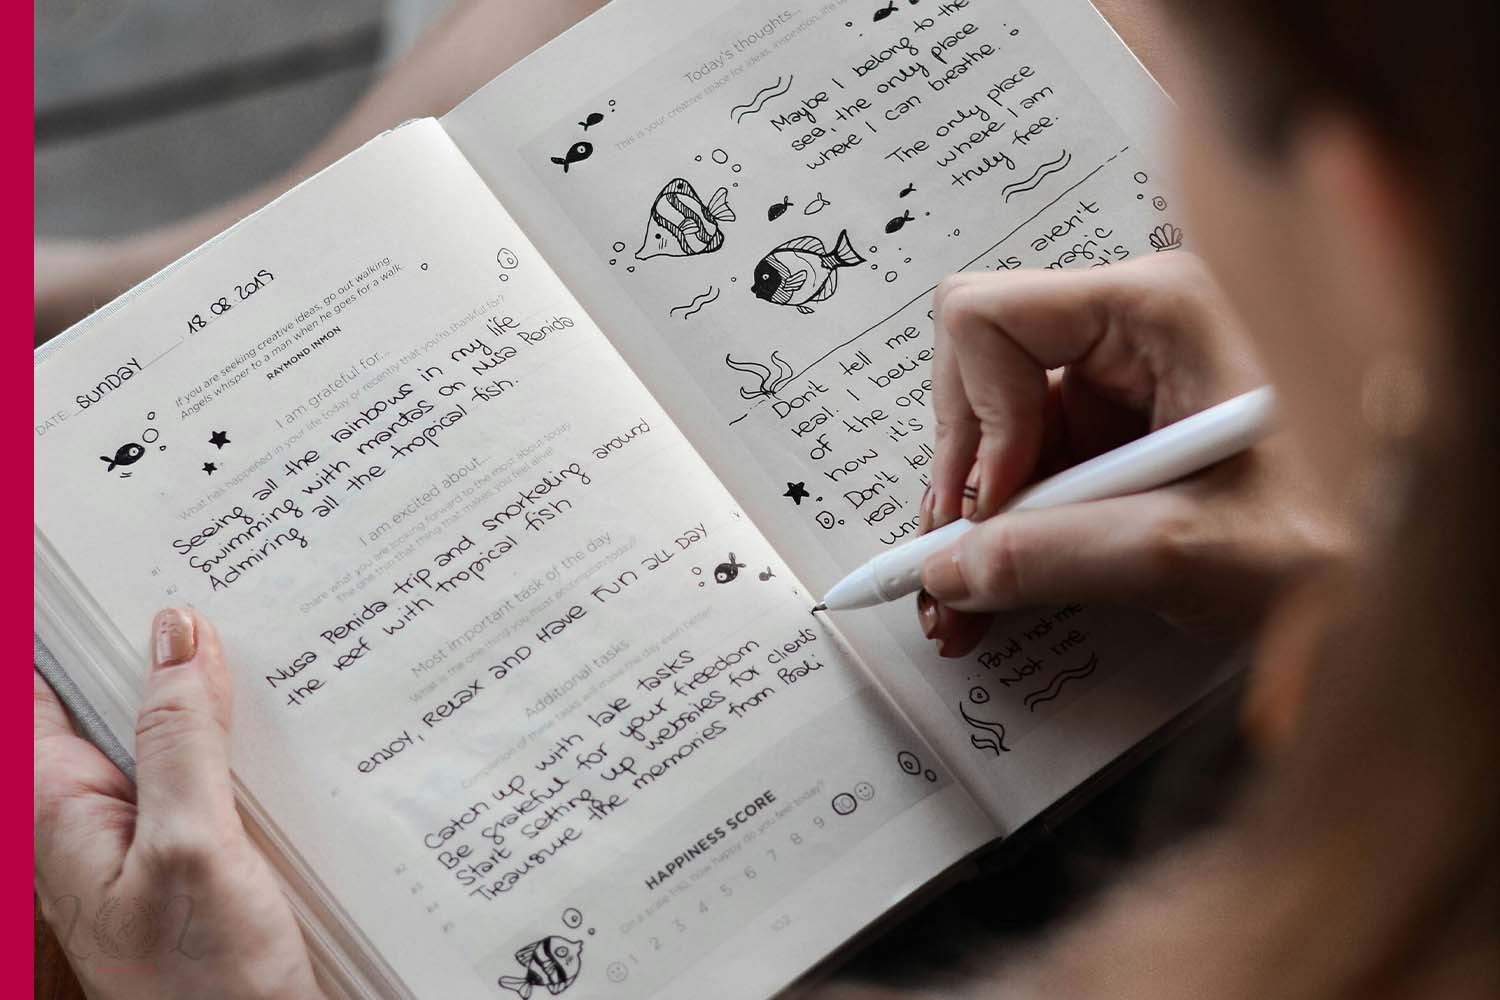 DATE: SUNDAY 18.08.2019
If you are seeking creative ideas, go out walking.
Angels whisper to a man when he goes for a walk.
RAYMOND INMON
I am grateful for...
What has happened in your life today or recently that you're thankful for?
Seeing all the rainbows in my life
Swimming with mantas on Nusa Penida
Admiring all the tropical fish.
I am excited about...
Share what you are looking forward to the most about today
the one thin that thing that makes you feel alive
Nusa Penida trip and snorkeling around
the reef with tropical fish
Most important task of the day
What is the one thing you must accomplish today?
ENJOY, RELAX AND HAVE FUN ALL DAY
Additional tasks
Completion of these tasks will make my day even better!
Catch up with late tasks
Be grateful for your freedom
Start setting up websites for clients
Treausure the memories from Bali
HAPPINESS SCORE
On a scale 1-10, how happy do you feel today?
1 2 3 4 5 6 7 8 9 10
102
Today's thoughts...
This is your creative space for ideas, inspiration, life
Maybe I belong to the
sea, the only place
where I can breathe.
The only place
where I am
truly free.
aren't
magic
Don't tell me
real. I
of the
how it's
Don't tell
real.
But not me.
Not me.
2&2